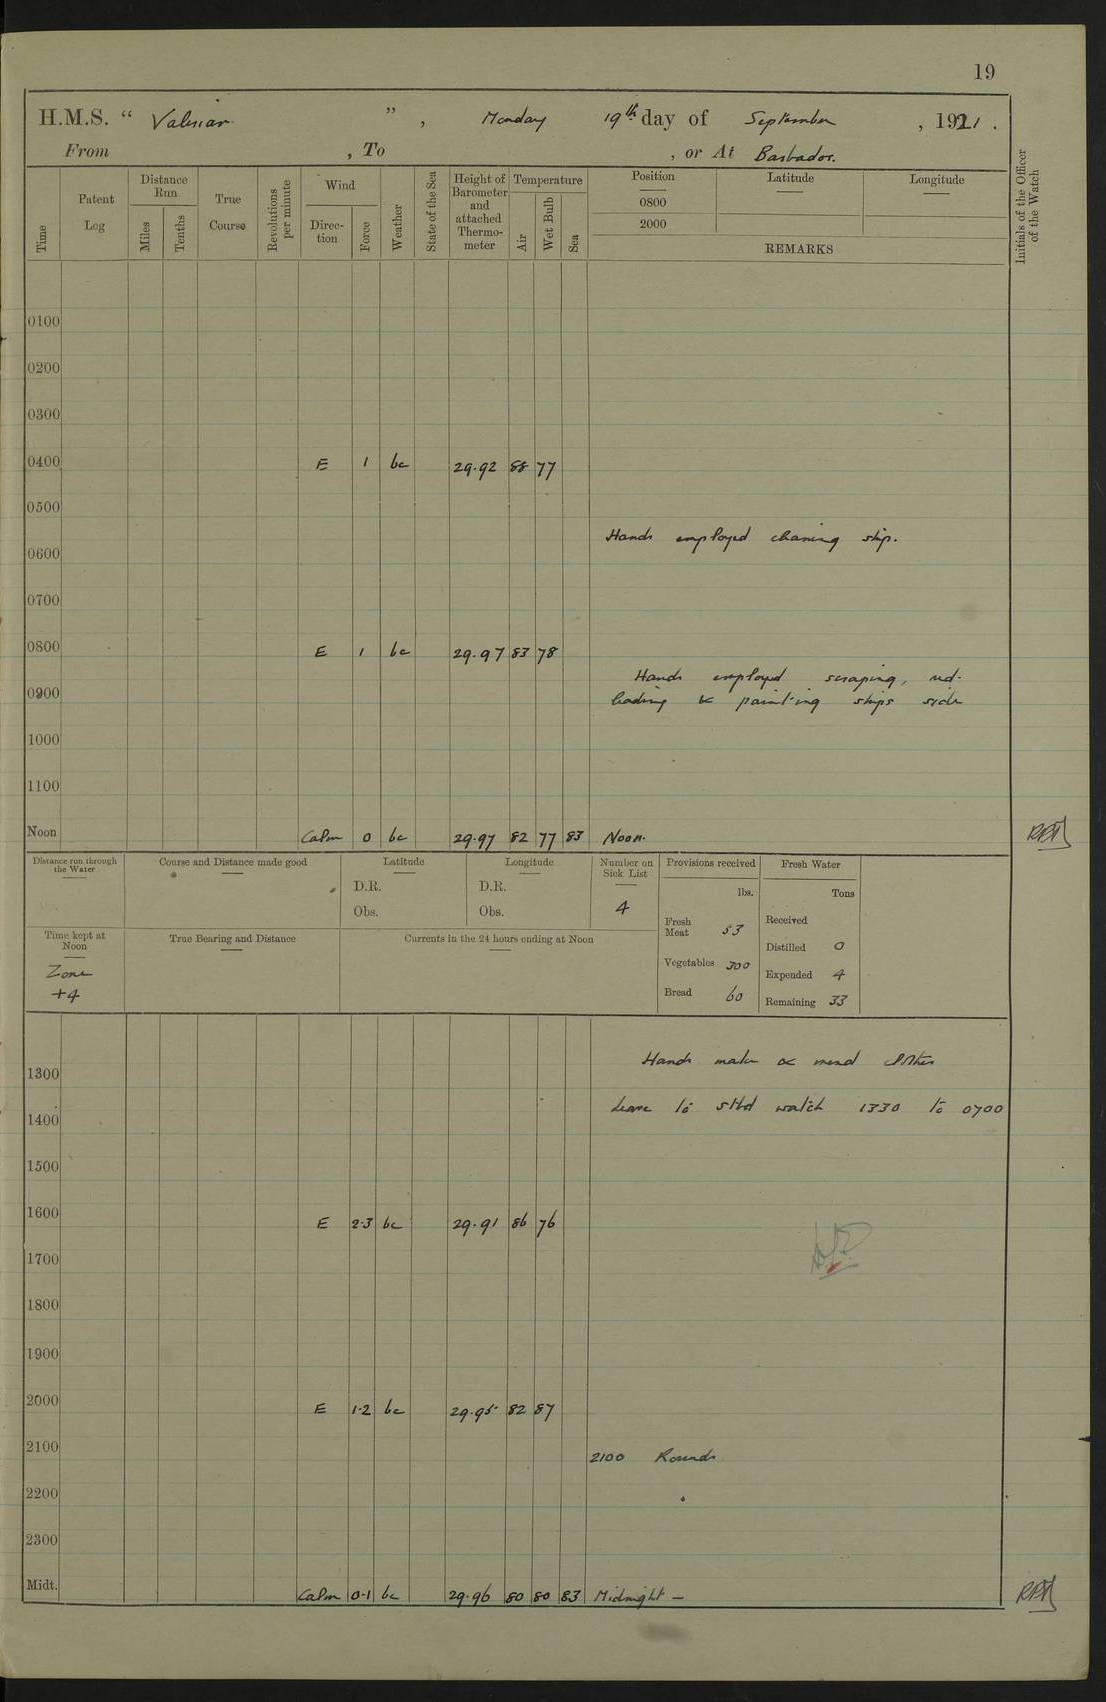 19
H.M.S. “ Valerian ”, Monday 19th day of September, 1921.
From , To , or At Barbados.
Time
Patent Log
Distance Run
Miles
Tenths
True Course
Revolutions per minute
Wind
Direction
Force
Weather
State of the Sea
Height of Barometer and attached Thermometer
Temperature
Air
Wet Bulb
Sea
Position
0800
2000
Latitude
Longitude
REMARKS
Initials of the Officer of the Watch
0100
0200
0300
0400 E 1 bc 29.92 88 77
0500
Hands employed cleaning ship.
0600
0700
0800 E 1 bc 29.97 83 78
Hands employed scraping, red-
0900 leading & painting ships side
1000
1100
Noon Calm 0 bc 29.97 82 77 83 Noon.
Distance run through the Water
Course and Distance made good
Latitude
D.R.
Obs.
Longitude
D.R.
Obs.
Number on Sick List
4
Provisions received
lbs.
Fresh Meat 53
Vegetables 300
Bread 60
Fresh Water
Tons
Received
Distilled 0
Expended 4
Remaining 33
Time kept at Noon
Zone
+4
True Bearing and Distance
Currents in the 24 hours ending at Noon
Hands make & mend clothes
1300
Leave to stbd watch 1330 to 0700
1400
1500
1600 E 2-3 bc 29.91 86 76
1700
1800
1900
2000 E 1-2 bc 29.95 82 87
2100
2100 Rounds
2200
2300
Midt. Calm 0-1 bc 29.96 80 80 83 Midnight —